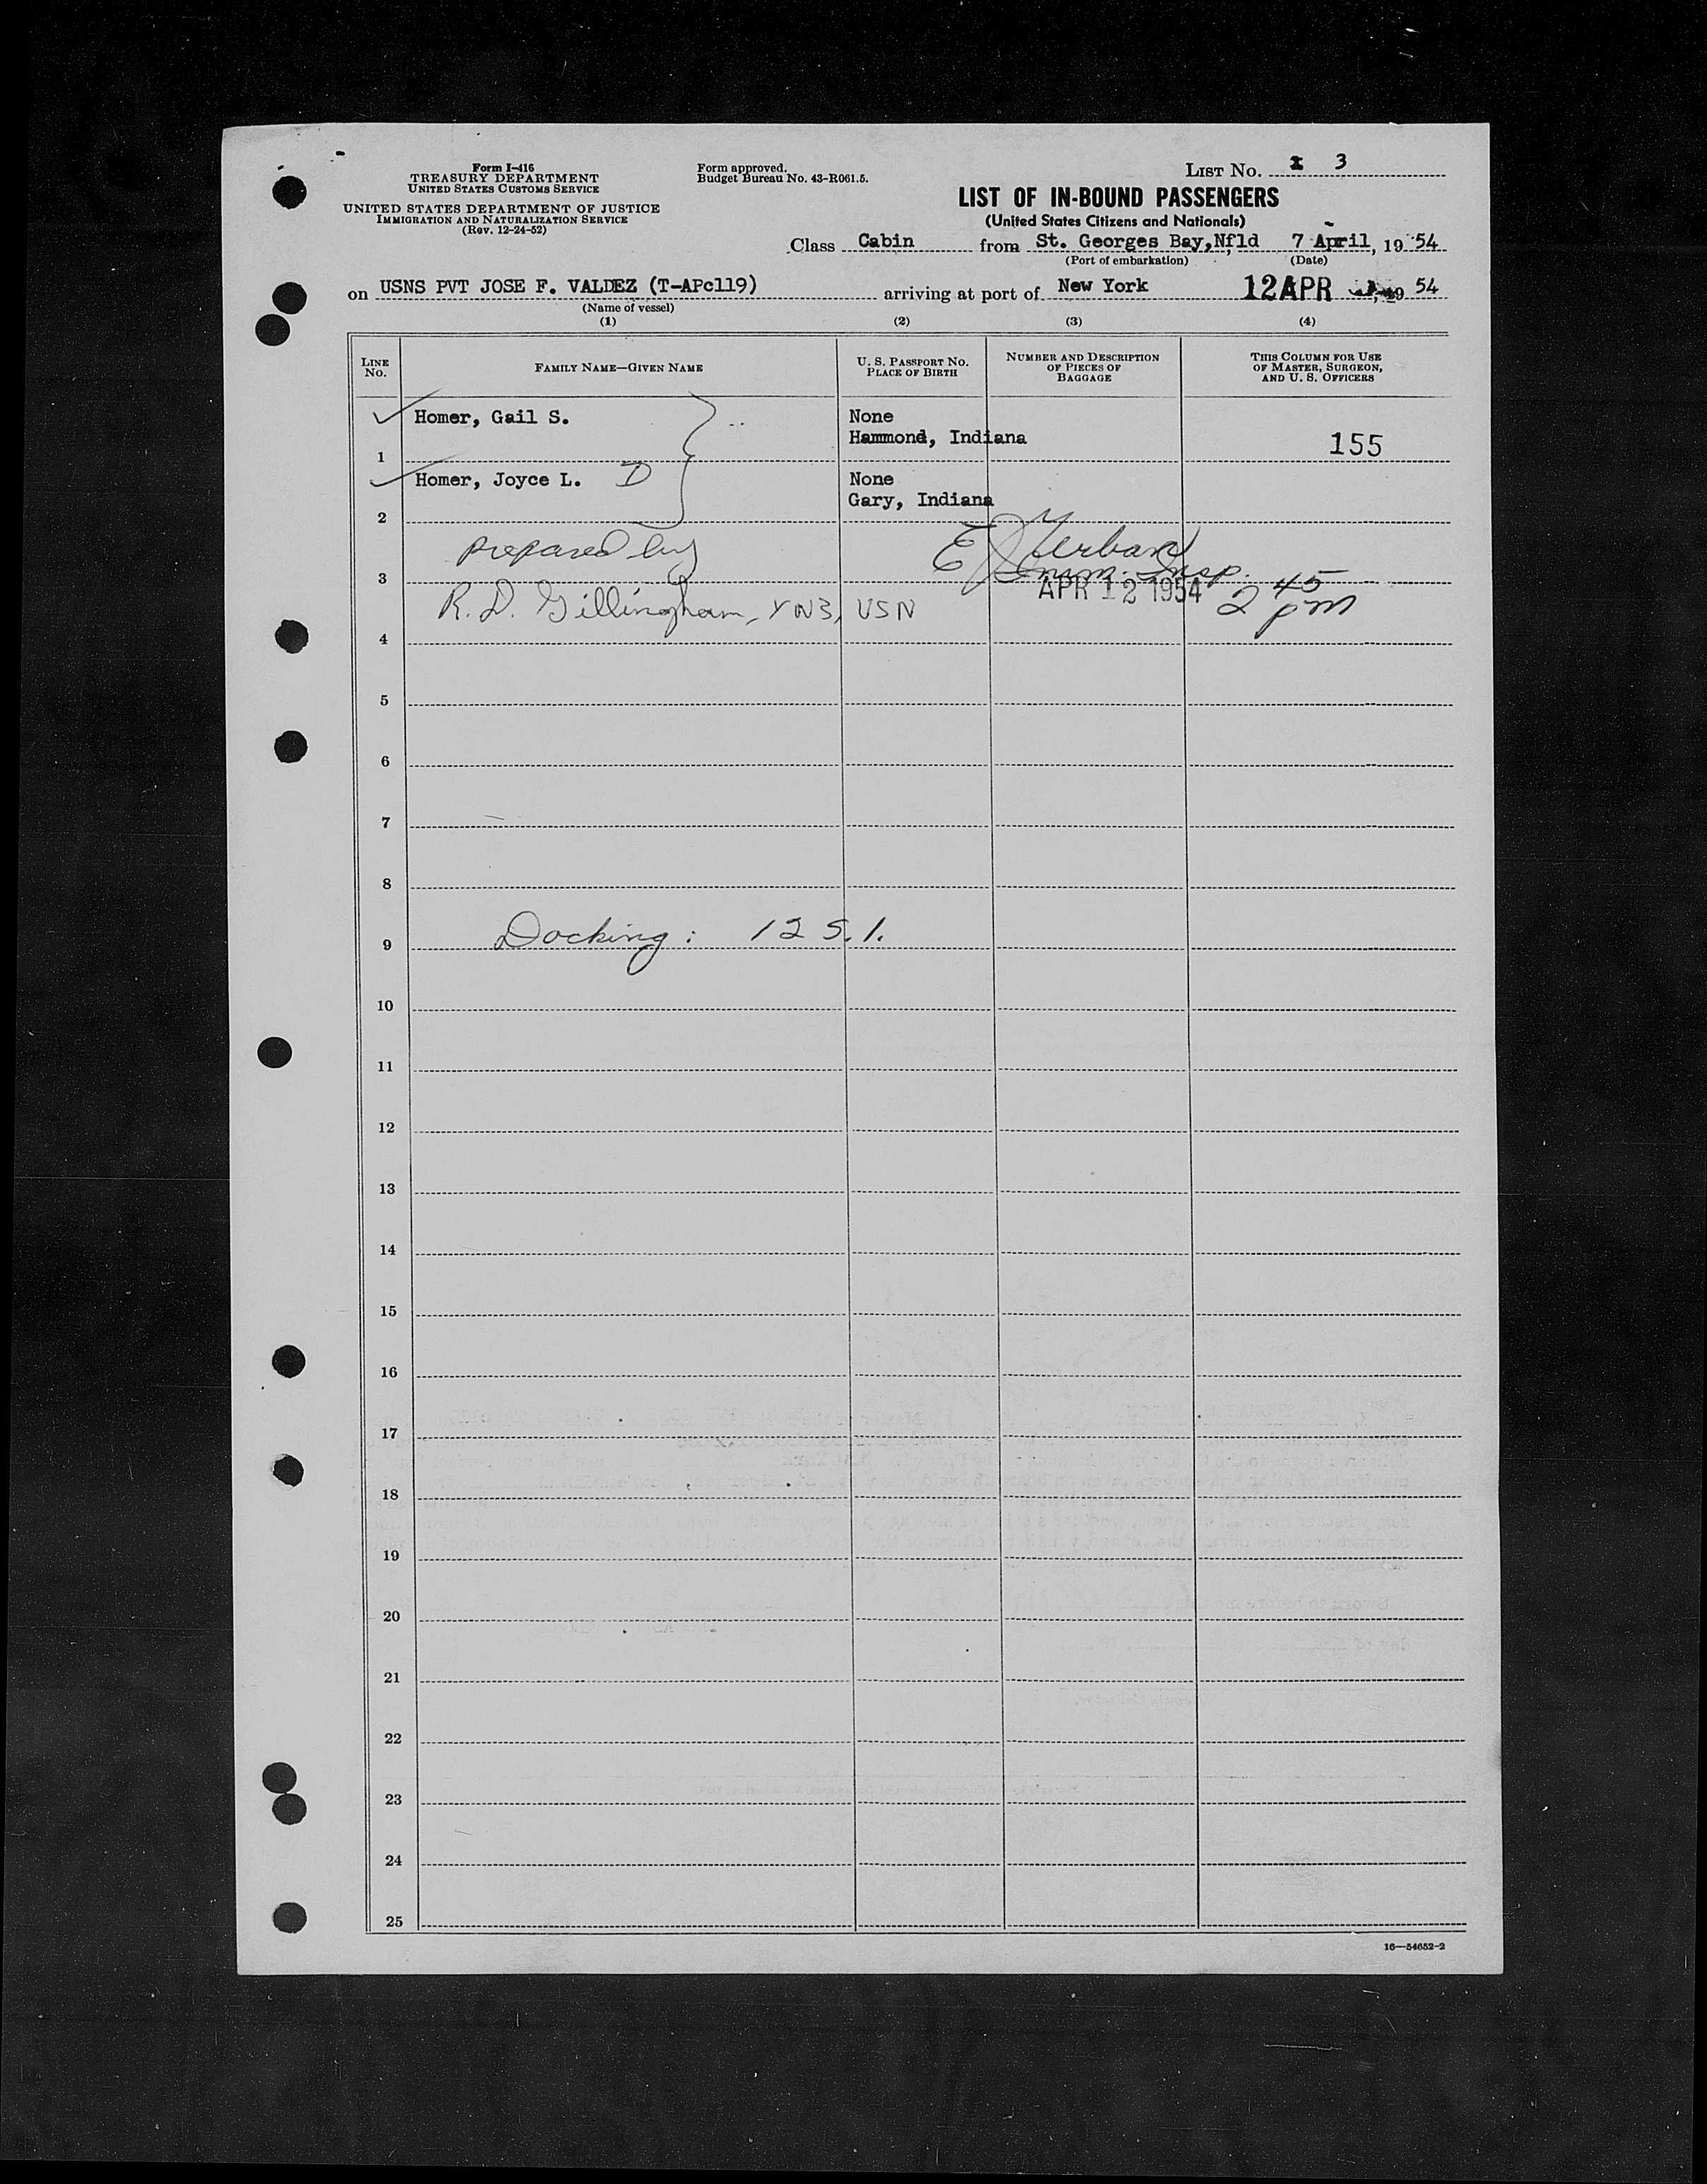 Form I-416
TREASURY DEPARTMENT
UNITED STATES CUSTOMS SERVICE
UNITED STATES DEPARTMENT OF JUSTICE
IMMIGRATION AND NATURALIZATION SERVICE
(Rev. 12-24-52)
Form approved.
Budget Bureau No. 43-R061.5.
LIST NO. 3
LIST OF IN-BOUND PASSENGERS
(United States Citizens and Nationals)
Class Cabin from St. Georges Bay,Nfld 7 April, 19 54
(Port of embarkation) (Date)
on USNS PVT JOSE F. VALDEZ (T-APc119) arriving at port of New York 12 APR 19 54
(Name of vessel)
(1) (2) (3) (4)
LINE NO. FAMILY NAME—GIVEN NAME U. S. PASSPORT NO. PLACE OF BIRTH NUMBER AND DESCRIPTION OF PIECES OF BAGGAGE THIS COLUMN FOR USE OF MASTER, SURGEON, AND U. S. OFFICERS
Homer, Gail S. None
1 Hammond, Indiana 155
Homer, Joyce L. D None
2 Gary, Indiana
prepared by E J
3 Imm. Insp.
APR 12 1954 2 45 pm
R. D. Gillingham, YN3, USN
4
5
6
7
8
9 Docking: 12 S.I.
10
11
12
13
14
15
16
17
18
19
20
21
22
23
24
25
16—54652-2